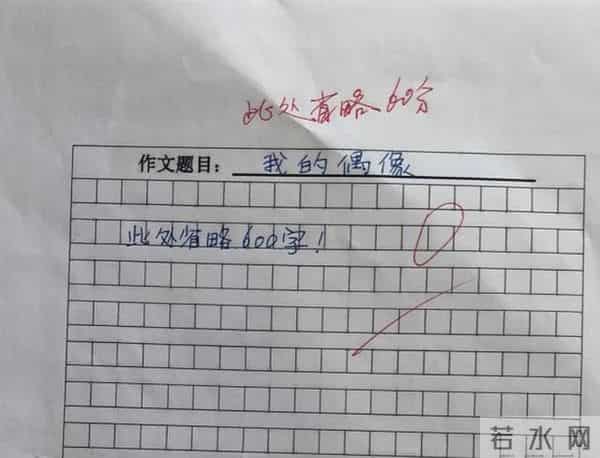 此处省略60分
作文题目：我的偶像
此处省略600字！
若水网